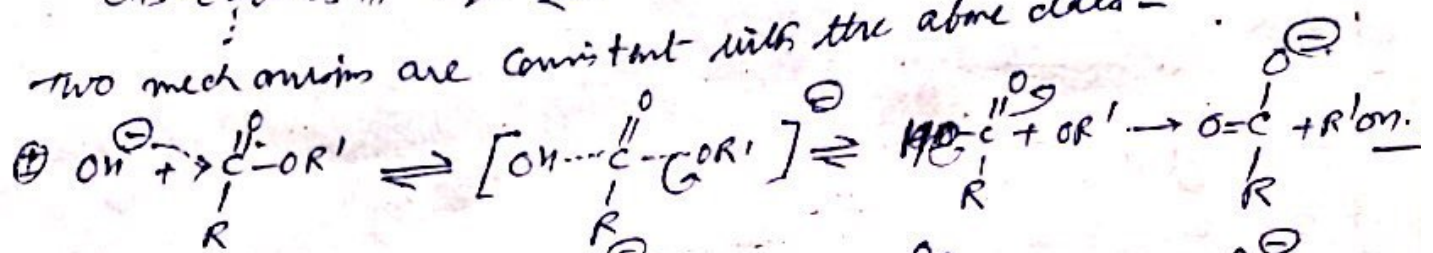 Two mechanisms are consistent with the above data –
⊖
O O O O⊖
① OH⊖ + C–OR' ⇌ [OH----C----OR']⊖ ⇌ HO–C + OR' → O=C + R'OH.
R R R R